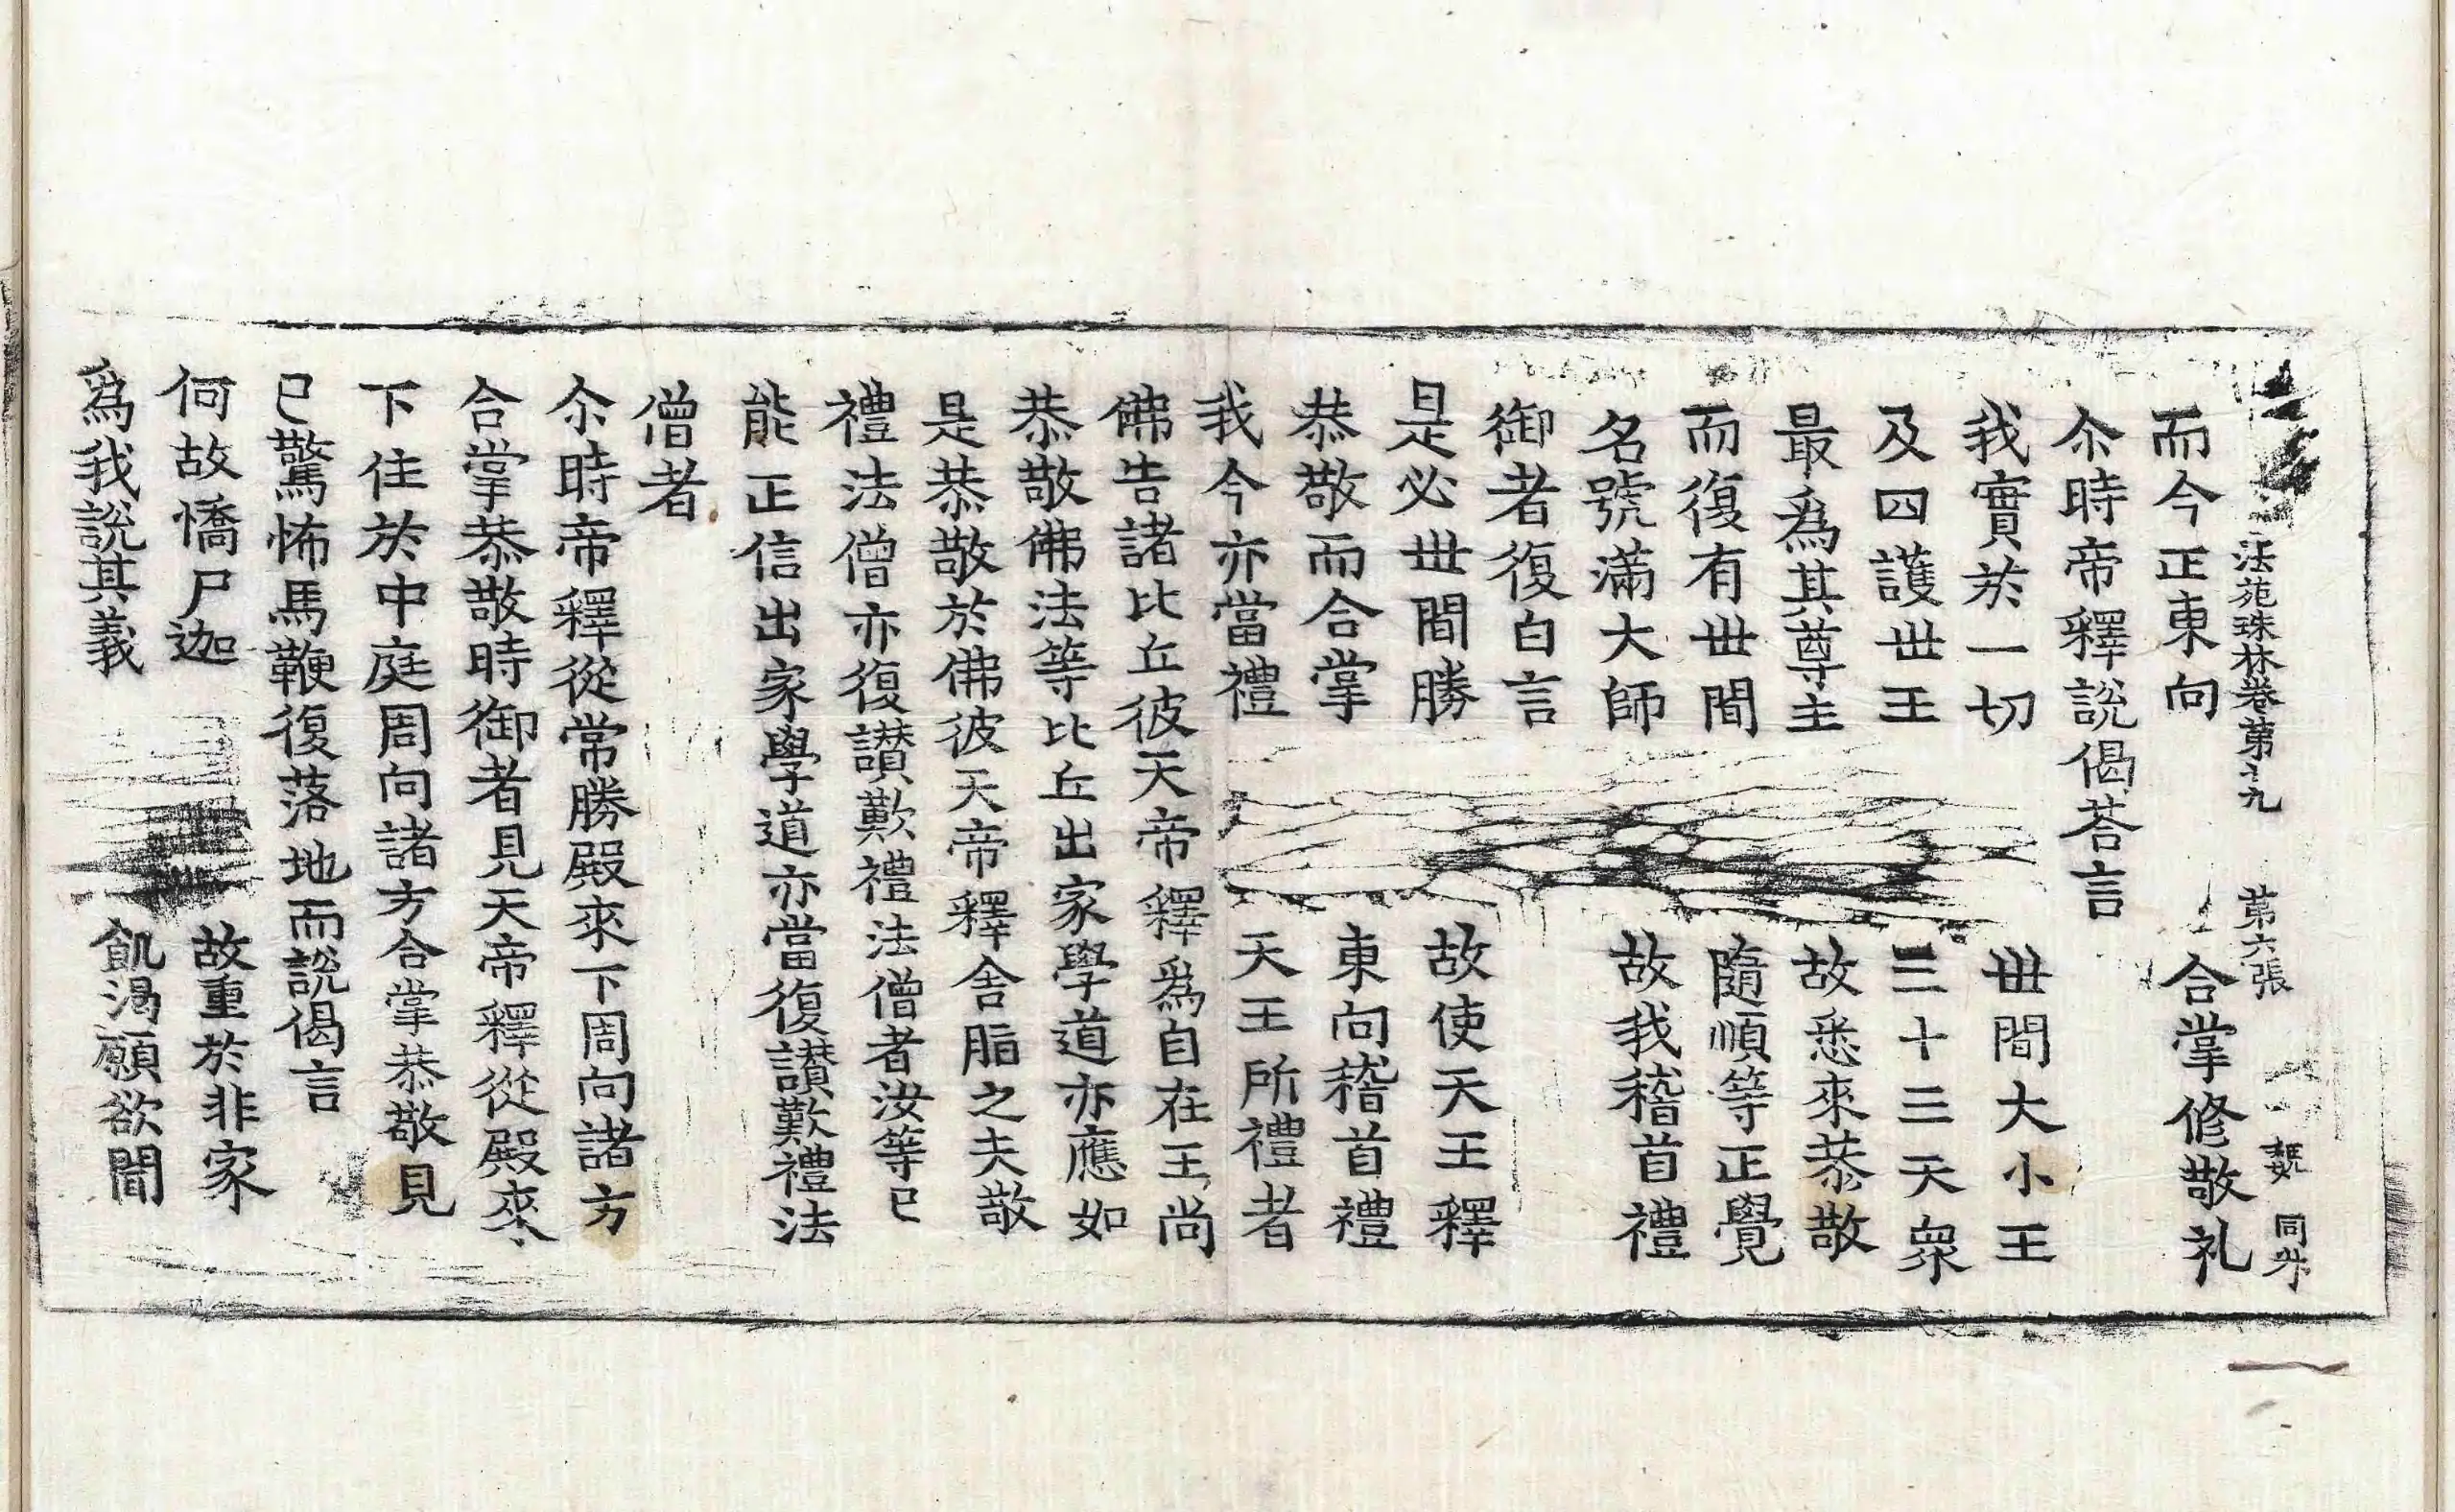 法苑珠林卷第十九　第六張　　同舛
而今正東向　合掌修敬礼
尒時帝釋說偈荅言
我實於一切　世間大小王
及四護世王　三十三天衆
最爲其尊主　故悉來恭敬
而復有世間　隨順等正覺
名號滿大師　故我稽首禮
御者復白言
是必世間勝　故使天王釋
恭敬而合掌　東向稽首禮
我今亦當禮　天王所禮者
佛告諸比丘彼天帝釋爲自在王尚
恭敬佛法等比丘出家學道亦應如
是恭敬於佛彼天帝釋舍脂之夫敬
禮法僧亦復讃歎禮法僧者汝等已
能正信出家學道亦當復讃歎禮法
僧者
尒時帝釋從常勝殿來下周向諸方
合掌恭敬時御者見天帝釋從殿來
下住於中庭周向諸方合掌恭敬見
已驚怖馬鞭復落地而說偈言
何故憍尸迦　故重於非家
爲我說其義　飢渴願欲聞